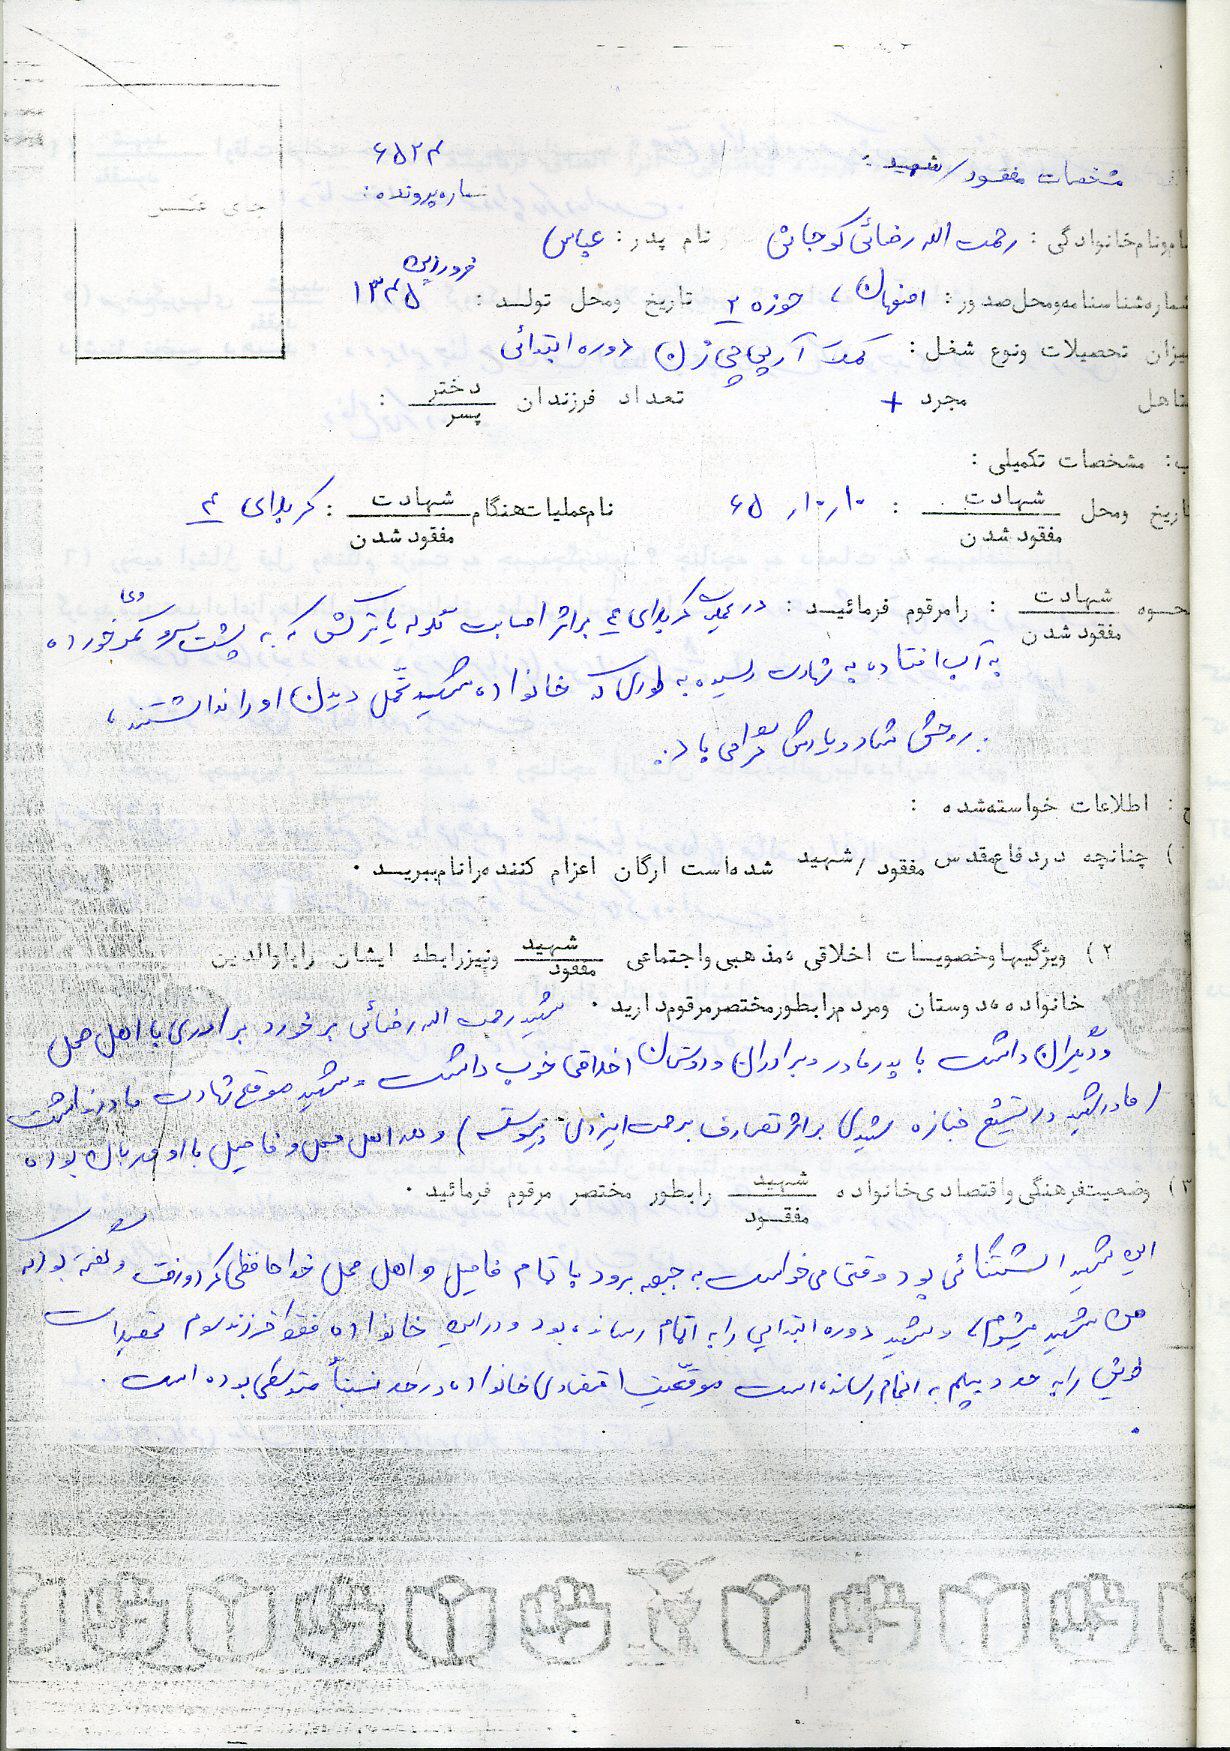 ۶۵۲۴
مشخصات مفقود/شهید :
شماره پرونده :
جای عکس
نام ونام خانوادگی : رحمت الله رضائی کوجانی نام پدر : عباس
شماره شناسنامه ومحل صدور : اصفهان، حوزه ۲ تاریخ ومحل تولد : فروردین ۱۳۴۵
میزان تحصیلات ونوع شغل : کمک آرپی جی زن دوره ابتدائی
متاهل مجرد + تعداد فرزندان دختر پسر :
ب : مشخصات تکمیلی :
تاریخ ومحل شهادت مفقود شدن : ۶۵ نام عملیات هنگام شهادت مفقود شدن : کربلای ۴
نحوه شهادت مفقود شدن : رامرقوم فرمائید : در عملیات کربلای ۴ براثر اصابت گلوله یا ترکش که به پشت سر و کمر خورده
به آب افتاده به شهادت رسیده به طوری که خانواده شهید تحمل دیدن او را نداشتند،
روحش شاد و یادش گرامی باد.
ج : اطلاعات خواسته شده :
۱) چنانچه دردفاع مقدس مفقود /شهید شده است ارگان اعزام کننده رانام ببرید .
۲) ویژگیها وخصوصیات اخلاقی ، مذهبی واجتماعی شهید مفقود ونیزرابطه ایشان راباوالدین
خانواده ، دوستان ومردم رابطورمختصر مرقوم دارید . شهید رحمت الله رضائی برخورد برادری با اهل محل
و دیگران داشت با پدر مادر و برادران و دوستان اخلاقی خوب داشت و شهید موقع شهادت مادر نداشت
(مادر شهید در تشییع جنازه شهیدی براثر تصادف به رحمت ایزدی پیوسته) و اهل محل و فامیل با او مهربان بوده
۳) وضعیت فرهنگی واقتصادی خانواده شهید مفقود رابطور مختصر مرقوم فرمائید .
این شهید استثنائی بود وقتی می خواست به جبهه برود با تمام فامیل و اهل محل خدا حافظی کرد و رفت و گفته بود که
من شهید میشوم، و شهید دوره ابتدایی را به اتمام رسانده بود و در این خانواده فقط فرزند سوم تحصیلات
خویش را به حد دیپلم به اتمام رسانده است موقعیت اقتصادی خانواده در حد نسبتاً متوسطی بوده است .